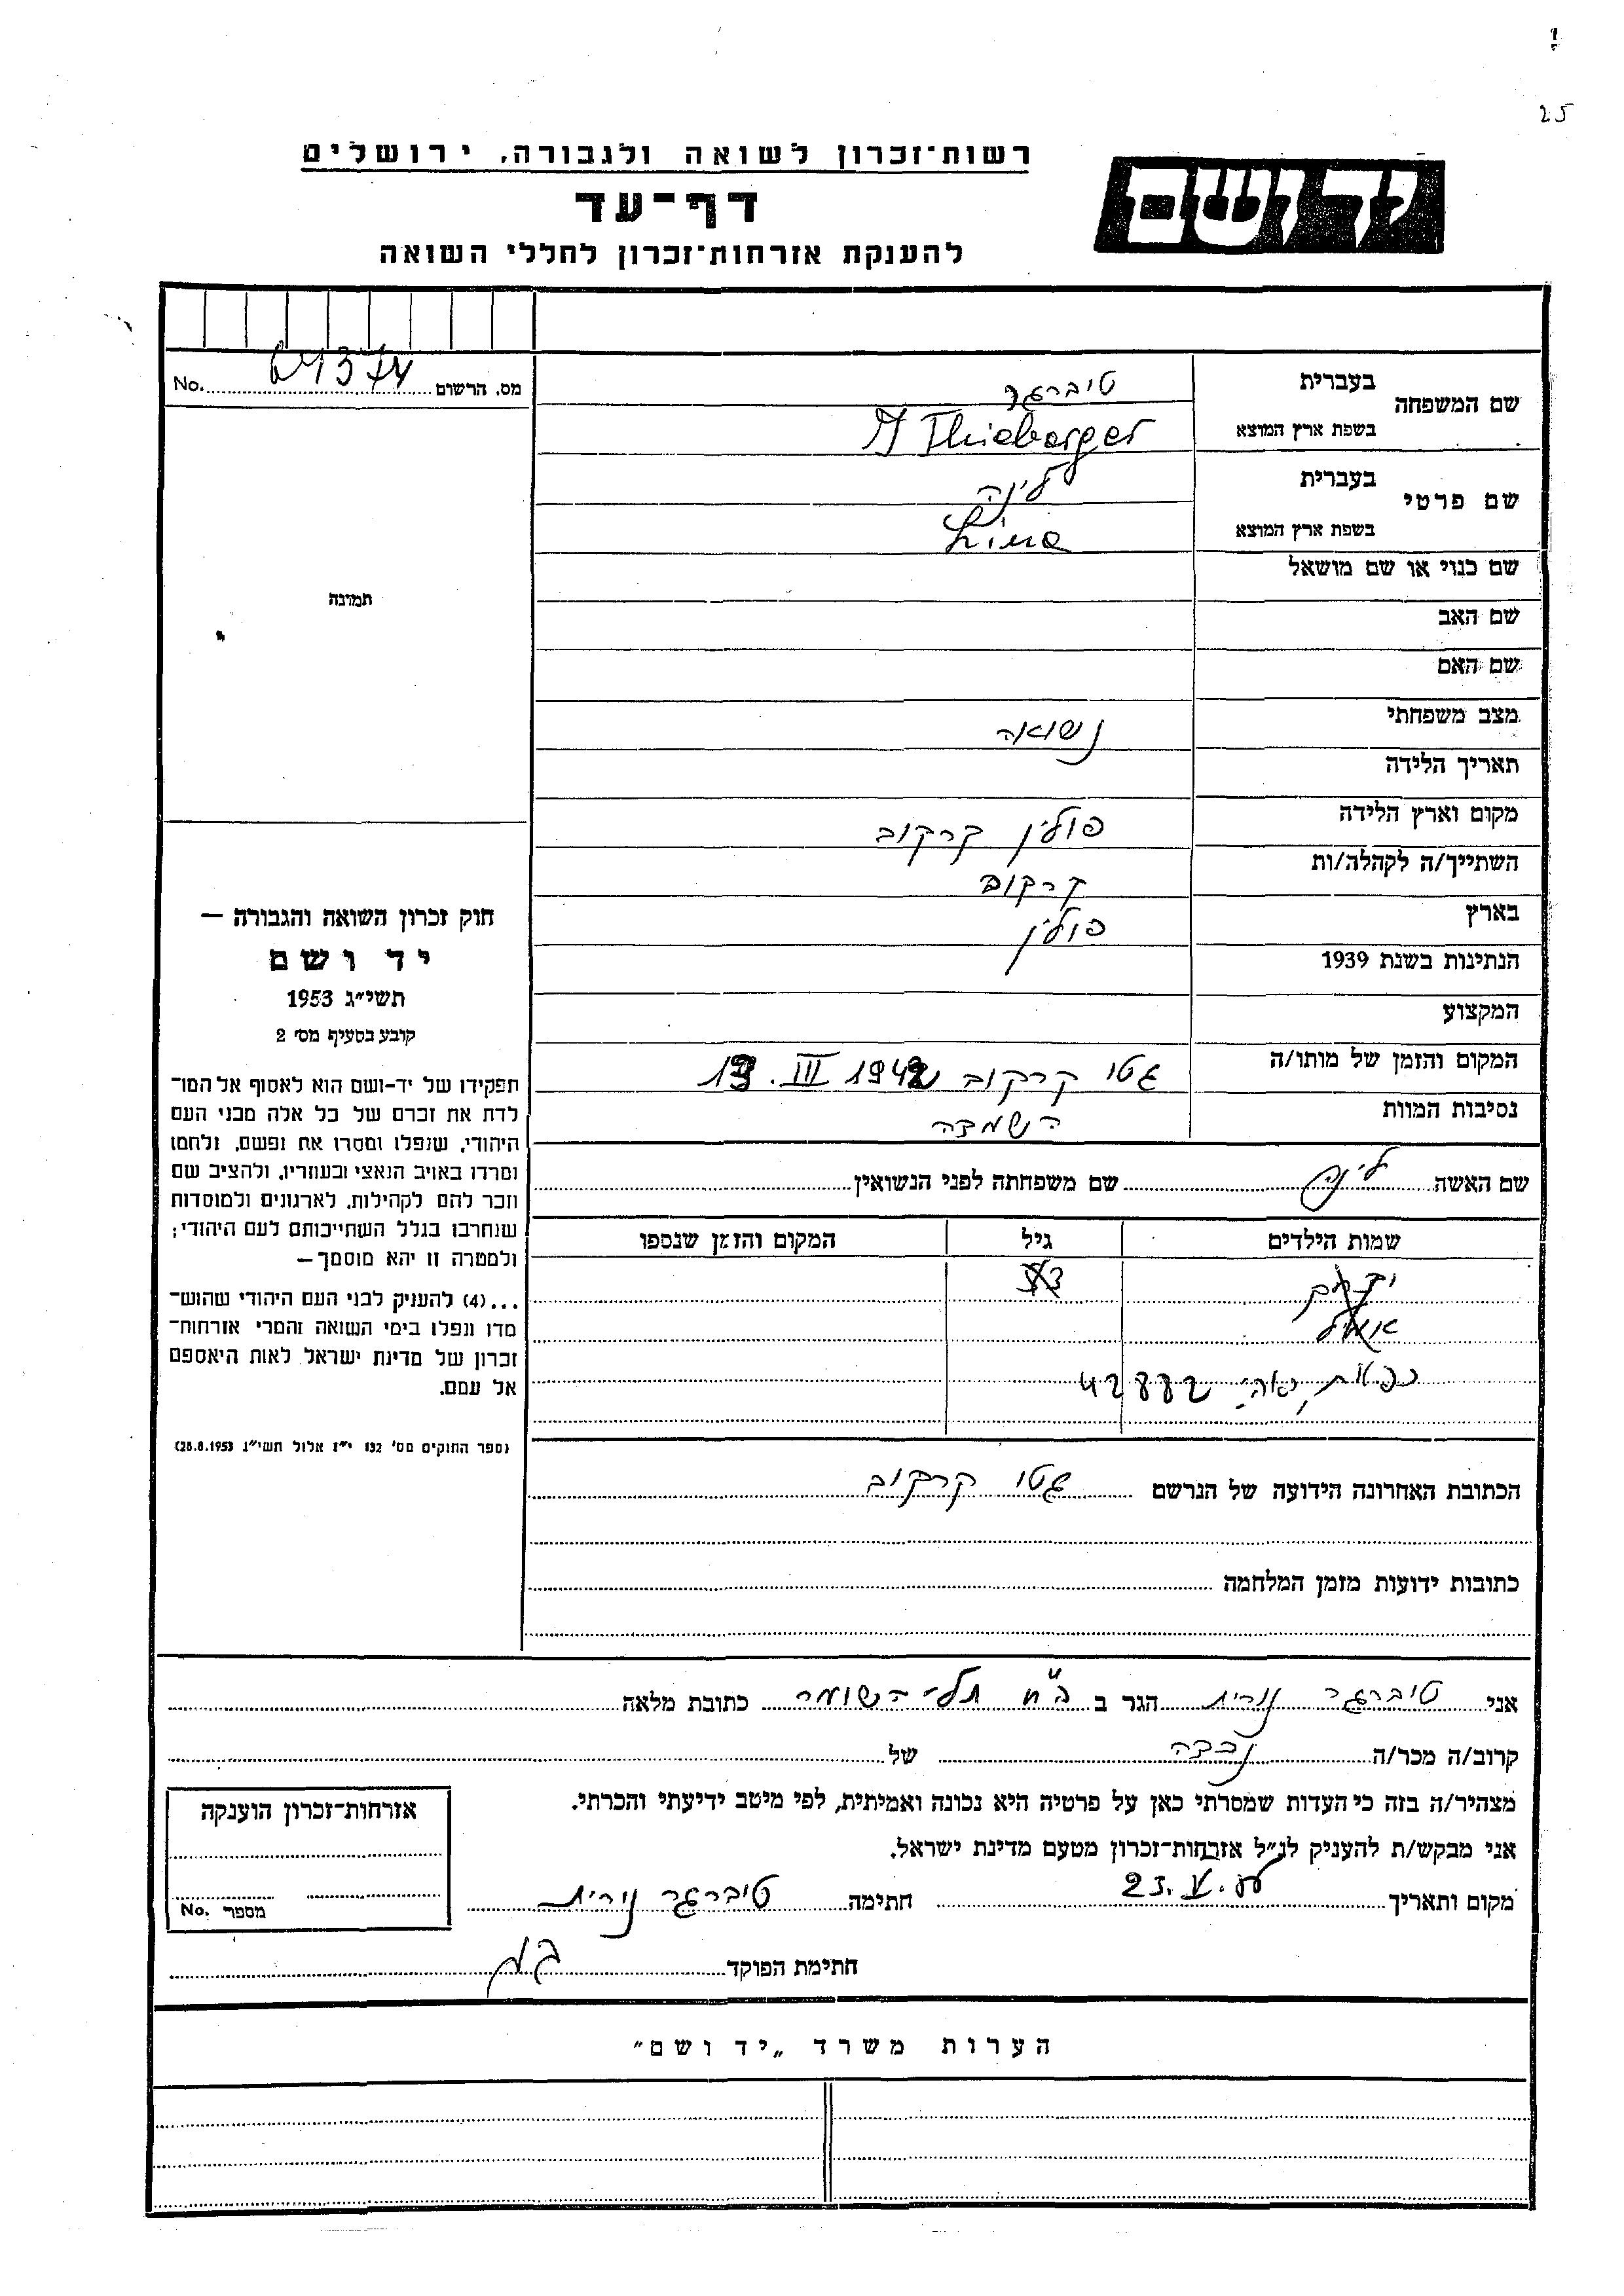 25
יד ושם
רשות־זכרון לשואה ולגבורה, ירושלים
דף־עד
להענקת אזרחות־זכרון לחללי השואה
מס. הרשום No.
שם המשפחה בעברית טיברגר
בשפת ארץ המוצא Thieberger
שם פרטי בעברית לינה
בשפת ארץ המוצא Lina
שם כנוי או שם מושאל
שם האב
שם האם
מצב משפחתי נשואה
תאריך הלידה
מקום וארץ הלידה פולין קרקוב
השתייך/ה לקהלה/ות קרקוב
בארץ פולין
הנתינות בשנת 1939
המקצוע
המקום והזמן של מותו/ה גטו קרקוב III 1942
נסיבות המוות השמדה
שם האשה לינה שם משפחתה לפני הנשואין
שמות הילדים גיל המקום והזמן שנספו
הכתובת האחרונה הידועה של הנרשם גטו קרקוב
כתובות ידועות מזמן המלחמה
תמונה
חוק זכרון השואה והגבורה —
יד ושם
תשי״ג 1953
קובע בסעיף מס׳ 2
תפקידו של יד-ושם הוא לאסוף אל המו־
לדת את זכרם של כל אלה מבני העם
היהודי, שנפלו ומסרו את נפשם, נלחמו
ומרדו באויב הנאצי ובעוזריו, ולהציב שם
וזכר להם לקהילות, לארגונים ולמוסדות
שנחרבו בגלל השתייכותם לעם היהודי;
ולמטרה זו יהא מוסמך—
...(4) להעניק לבני העם היהודי שהוש־
מדו ונפלו בימי השואה והמרי אזרחות־
זכרון של מדינת ישראל לאות היאספם
אל עמם.
(ספר החוקים מס׳ 132 י״ז אלול תשי״ג 28.8.1953)
אני טיברגר נורית הגר ב ב״ח תל-השומר כתובת מלאה
קרוב/ה מכר/ה נכדה של
מצהיר/ה בזה כי העדות שמסרתי כאן על פרטיה היא נכונה ואמיתית, לפי מיטב ידיעתי והכרתי.
אני מבקש/ת להעניק לנ״ל אזרחות־זכרון מטעם מדינת ישראל.
מקום ותאריך 23.V. חתימה טיברגר נורית
חתימת הפוקד
אזרחות־זכרון הוענקה
מספר No.
הערות משרד „יד ושם״